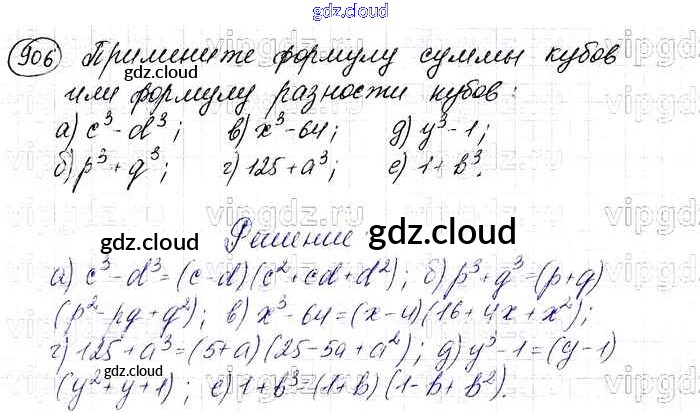 gdz.cloud
906 Примените формулу суммы кубов
gdz.cloud
или формулу разности кубов:
а) c³-d³; в) x³-64; д) y³-1;
б) p³+q³; г) 125+a³; е) 1+b³.
vipgdz.ru
Решение
gdz.cloud gdz.cloud
а) c³-d³=(c-d)(c²+cd+d²); б) p³+q³=(p+q)
(p²-pq+q²); в) x³-64=(x-4)(16+4x+x²);
г) 125+a³=(5+a)(25-5a+a²); д) y³-1=(y-1)
(y²+y+1); е) 1+b³=(1+b)(1-b+b²).
gdz.cloud gdz.cloud